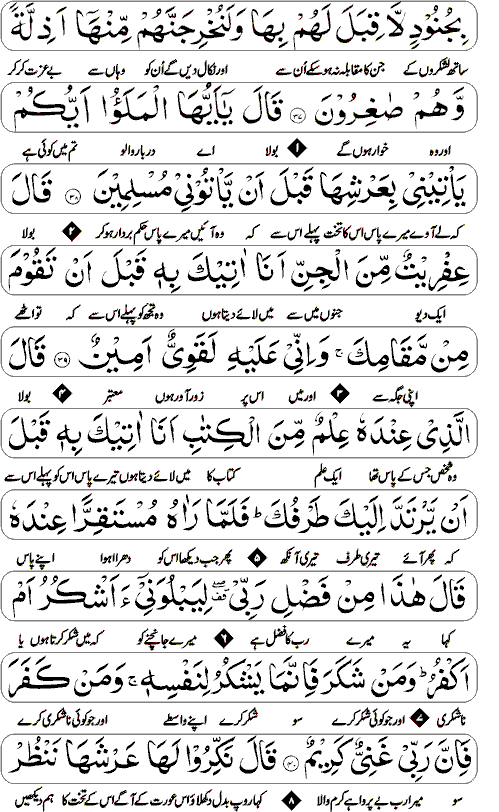 بِجُنُوْدٍ لَّا قِبَلَ لَهُمْ بِهَا وَلَنُخْرِجَنَّهُمْ مِّنْهَآ اَذِلَّةً
ساتھ لشکروں کے جن کا مقابلہ نہ ہوسکے اُن سے اور نکال دیں گے اُن کو وہاں سے بے عزت کر کر
وَّهُمْ صٰغِرُوْنَ ﴿۳۷﴾ قَالَ يٰٓاَيُّهَا الْمَلَؤُا اَيُّكُمْ
اور وہ خوار ہوں گے ۱ بولا اے دربار والو تم میں کوئی ہے
يَاْتِيْنِيْ بِعَرْشِهَا قَبْلَ اَنْ يَّاْتُوْنِيْ مُسْلِمِيْنَ ﴿۳۸﴾ قَالَ
کہ لے آوے میرے پاس اس کا تخت پہلے اس سے کہ وہ آئیں میرے پاس حکم بردار ہو کر ۲ بولا
عِفْرِيْتٌ مِّنَ الْجِنِّ اَنَا اٰتِيْكَ بِهٖ قَبْلَ اَنْ تَقُوْمَ
ایک دیو جنوں میں سے میں لائے دیتا ہوں وہ تجھ کو پہلے اس سے کہ تو اٹھے
مِنْ مَّقَامِكَ ۚ وَاِنِّيْ عَلَيْهِ لَقَوِيٌّ اَمِيْنٌ ﴿۳۹﴾ قَالَ
اپنی جگہ سے ۳ اور میں اس پر زور آور ہوں معتبر ۴ بولا
الَّذِيْ عِنْدَهٗ عِلْمٌ مِّنَ الْكِتٰبِ اَنَا اٰتِيْكَ بِهٖ قَبْلَ
وہ شخص جس کے پاس تھا ایک علم کتاب کا میں لائے دیتا ہوں تیرے پاس اس کو پہلے اس سے
اَنْ يَّرْتَدَّ اِلَيْكَ طَرْفُكَ ؕ فَلَمَّا رَاٰهُ مُسْتَقِرًّا عِنْدَهٗ
کہ پھر آئے تیری طرف تیری آنکھ ۵ پھر جب دیکھا اس کو دھرا ہوا اپنے پاس
قَالَ هٰذَا مِنْ فَضْلِ رَبِّيْ ۖ لِيَبْلُوَنِيْٓ ءَاَشْكُرُ اَمْ
کہا یہ میرے رب کا فضل ہے ۶ میرے جانچنے کو کہ میں شکر کرتا ہوں یا
اَكْفُرُ ؕ وَمَنْ شَكَرَ فَاِنَّمَا يَشْكُرُ لِنَفْسِهٖ ۚ وَمَنْ كَفَرَ
ناشکری ۷ اور جو کوئی شکر کرے سو شکر کرے اپنے واسطے اور جو کوئی ناشکری کرے
فَاِنَّ رَبِّيْ غَنِيٌّ كَرِيْمٌ ﴿۴۰﴾ قَالَ نَكِّرُوْا لَهَا عَرْشَهَا نَنْظُرْ
سو میرا رب بے پروا ہے کرم والا ۸ کہا روپ بدل دکھلاؤ اس عورت کے آگے اس کے تخت کا ہم دیکھیں